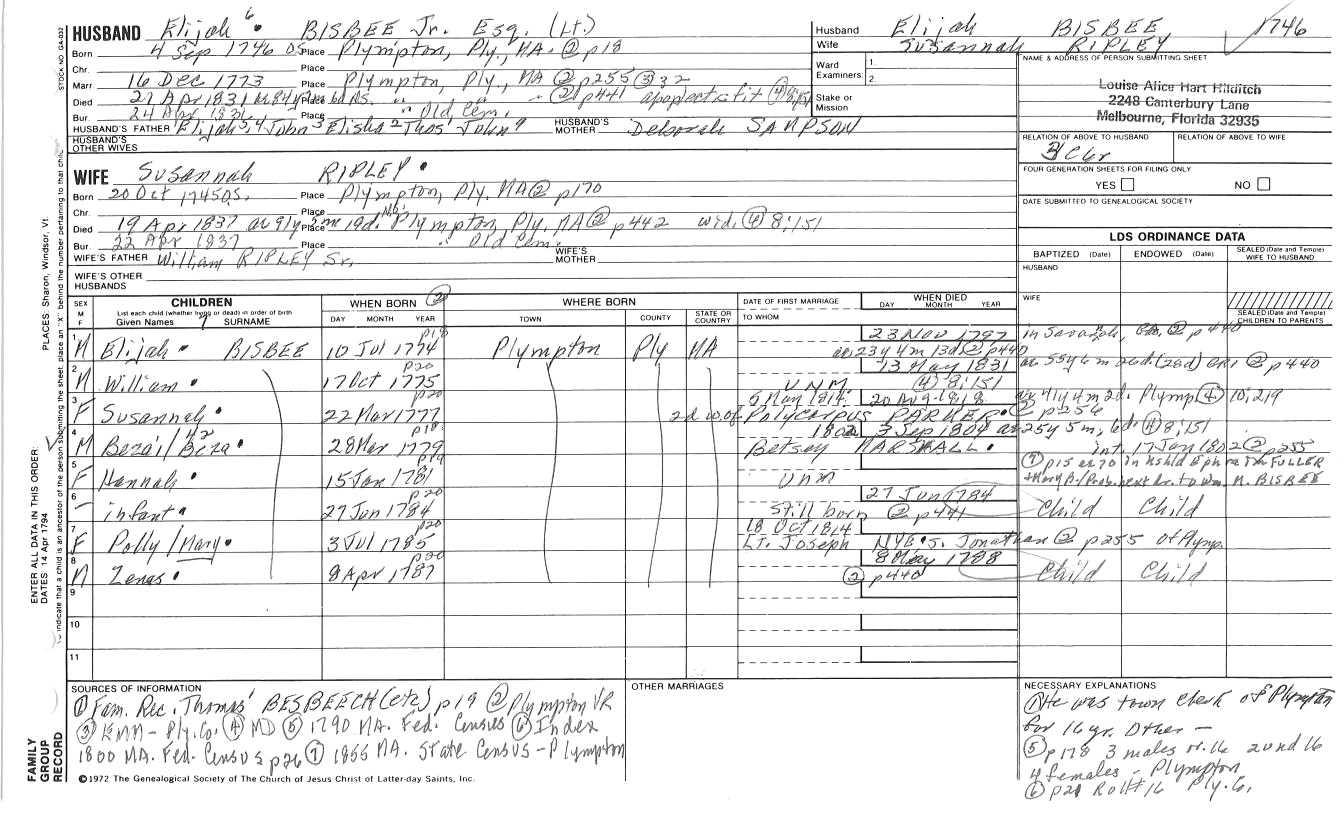 HUSBAND Elijah 6 BISBEE Jr. Esq. (Lt.)
Born 4 Sep 1746 OS Place Plympton, Ply, MA. ② p18
Chr. Place
Marr 16 Dec 1773 Place Plympton, Ply, MA ② p255 ③ 32
Died 21 Apr 1831 ae 84y Place " " ② p441 apoplectic fit ④ 8:151
Bur. 24 Apr 1831 Place " Old Cem.
HUSBAND'S FATHER Elijah 5, 4 John 3 Elisha 2 Thos John HUSBAND'S MOTHER Deborah SAMPSON
HUSBAND'S OTHER WIVES
WIFE Susannah RIPLEY
Born 20 Oct 1745 OS. Place Plympton, Ply. MA ② p170
Chr. Place
Died 19 Apr 1837 ae 91y 5m 19d. Place Plympton, Ply. MA ② p442 wid. ④ 8:151
Bur. 22 Apr 1837 Place " Old Cem.
WIFE'S FATHER William RIPLEY Sr. WIFE'S MOTHER
WIFE'S OTHER HUSBANDS
Husband Elijah BISBEE 1746
Wife Susannah RIPLEY
Ward Examiners: 1.
2.
Stake or Mission
NAME & ADDRESS OF PERSON SUBMITTING SHEET
Louise Alice Hart Hilditch
2248 Canterbury Lane
Melbourne, Florida 32935
RELATION OF ABOVE TO HUSBAND RELATION OF ABOVE TO WIFE
FOUR GENERATION SHEETS FOR FILING ONLY
YES NO
DATE SUBMITTED TO GENEALOGICAL SOCIETY
LDS ORDINANCE DATA
BAPTIZED (Date) ENDOWED (Date) SEALED (Date and Temple) WIFE TO HUSBAND
HUSBAND
WIFE
SEALED (Date and Temple) CHILDREN TO PARENTS
SEX M F CHILDREN WHEN BORN ② WHERE BORN DATE OF FIRST MARRIAGE WHEN DIED
List each child (whether living or dead) in order of birth
Given Names 7 SURNAME DAY MONTH YEAR TOWN COUNTY STATE OR COUNTRY TO WHOM DAY MONTH YEAR
1 M Elijah BISBEE 10 Jul 1774 p18 Plympton Ply MA 23 Nov 1797 in Savannah, GA. ② p440
ae 23y 4m 13d ② p440
2 M William 17 Oct 1775 p20 UNM 13 May 1831 ae 55y 6m 26d. (28d) GR1 ② p440
④ 8:151
3 F Susannah 22 Mar 1777 p20 5 May 1814 20 Aug 1818 ae 41y 4m 2d. Plymp ④ 10:219
2d w. of Polycarpus PARKER ② p256
4 M Beza'l/Beza 28 Mar 1779 p18 1802 3 Sep 1804 ae 25y 5m, 6d. ④ 8:151
Betsey MARSHALL int. 17 Jan 1802 ② p255
5 F Hannah 15 Jan 1781 p19 Unm ⑦ p15 ae 70 in hshld Ephraim FULLER
next dr. to Wm. H. BISBEE
6 infant 27 Jun 1784 p20 27 Jun 1784 Child Child
Still born ② p441
7 F Polly/Mary 3 Jul 1785 p20 18 Oct 1814
Lt. Joseph NYE s. Jonathan ② p255 of Plymp.
8 M Zenas 8 Apr 1787 p20 8 May 1788 Child Child
② p440
9
10
11
SOURCES OF INFORMATION
① Fam. Rec. Thomas BESBEECH (etc) p19 ② Plympton VR
③ EMM - Ply. Co. ④ MD ⑤ 1790 MA. Fed. Census ⑥ Index
1800 MA. Fed. Census p26 ⑦ 1855 MA. State Census - Plympton
OTHER MARRIAGES
NECESSARY EXPLANATIONS
① He was town clerk of Plympton
for 16 yr. Other -
⑤ p178 3 males ov. 16 2 und 16
4 females - Plympton
⑥ p21 Roll # 16 Ply. Co.
©1972 The Genealogical Society of The Church of Jesus Christ of Latter-day Saints, Inc.
FAMILY GROUP RECORD
ENTER ALL DATA IN THIS ORDER:
DATES: 14 Apr 1794
PLACES: Sharon, Windsor, Vt.
to indicate that a child is an ancestor of the person submitting the sheet, place an "X" behind the number pertaining to that child.
STOCK NO. GA-032